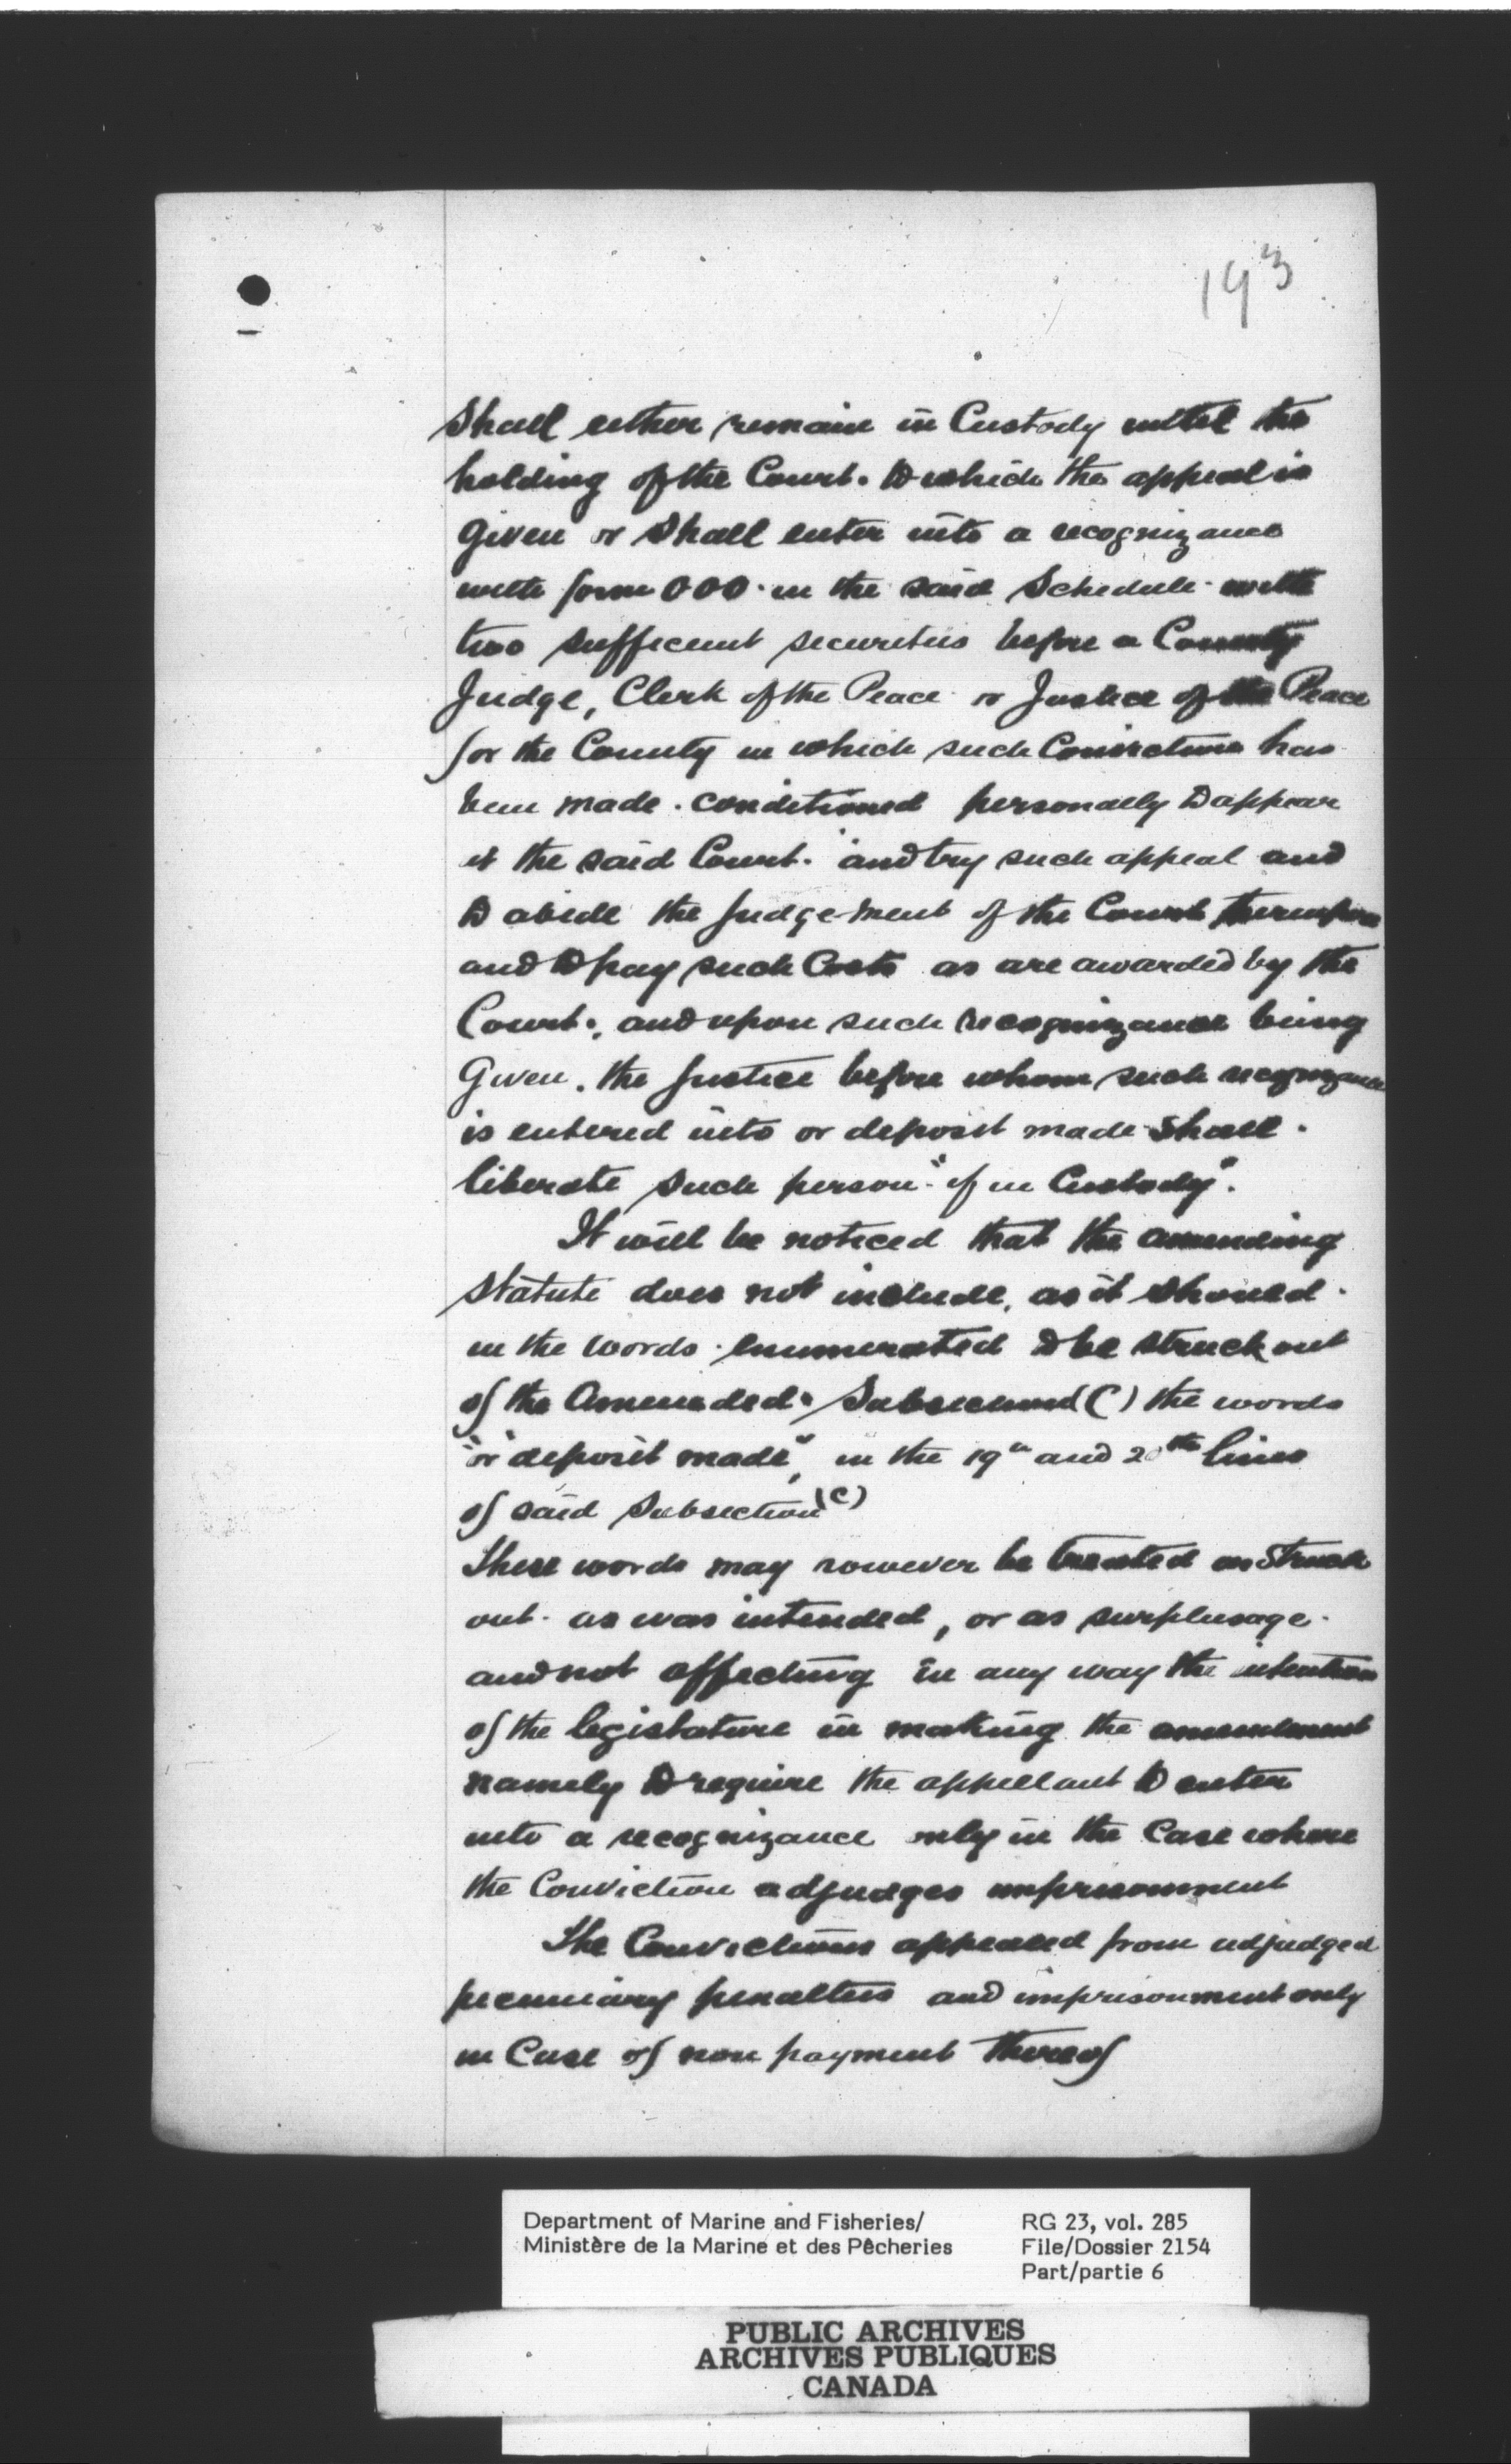 193
Shall either remain in Custody until the
holding of the Court. to which the appeal is
given or shall enter into a recognizance
with form OOO. in the said Schedule. with
two sufficient securities before a County
Judge, Clerk of the Peace or Justice of the Peace
for the County in which such Conviction has
been made. conditioned personally to appear
at the said Court. and try such appeal and
to abide the Judge-ment of the Court thereupon
and to pay such Costs as are awarded by the
Court., and upon such recognizance being
Given. the Justice before whom such recognizance
is entered into or deposit made shall.
liberate such person "if in Custody".
It will be noticed that the amending
Statute does not include, as it should.
in the words enumerated to be struck out
of the Amended. Subsection (C) the words
"or deposit made", in the 19th and 20th lines
of said Subsection (C)
These words may however be treated as Struck
out. as was intended, or as surplusage.
and not affecting in any way the intention
of the legislature in making the amendment
namely to require the appellant to enter
into a recognizance only in the Case where
the Conviction adjudges imprisonment
The Convictions appealed from adjudged
pecuniary penalties and imprisonment only
in Case of non payment thereof
Department of Marine and Fisheries/
Ministère de la Marine et des Pêcheries
RG 23, vol. 285
File/Dossier 2154
Part/partie 6
PUBLIC ARCHIVES
ARCHIVES PUBLIQUES
CANADA